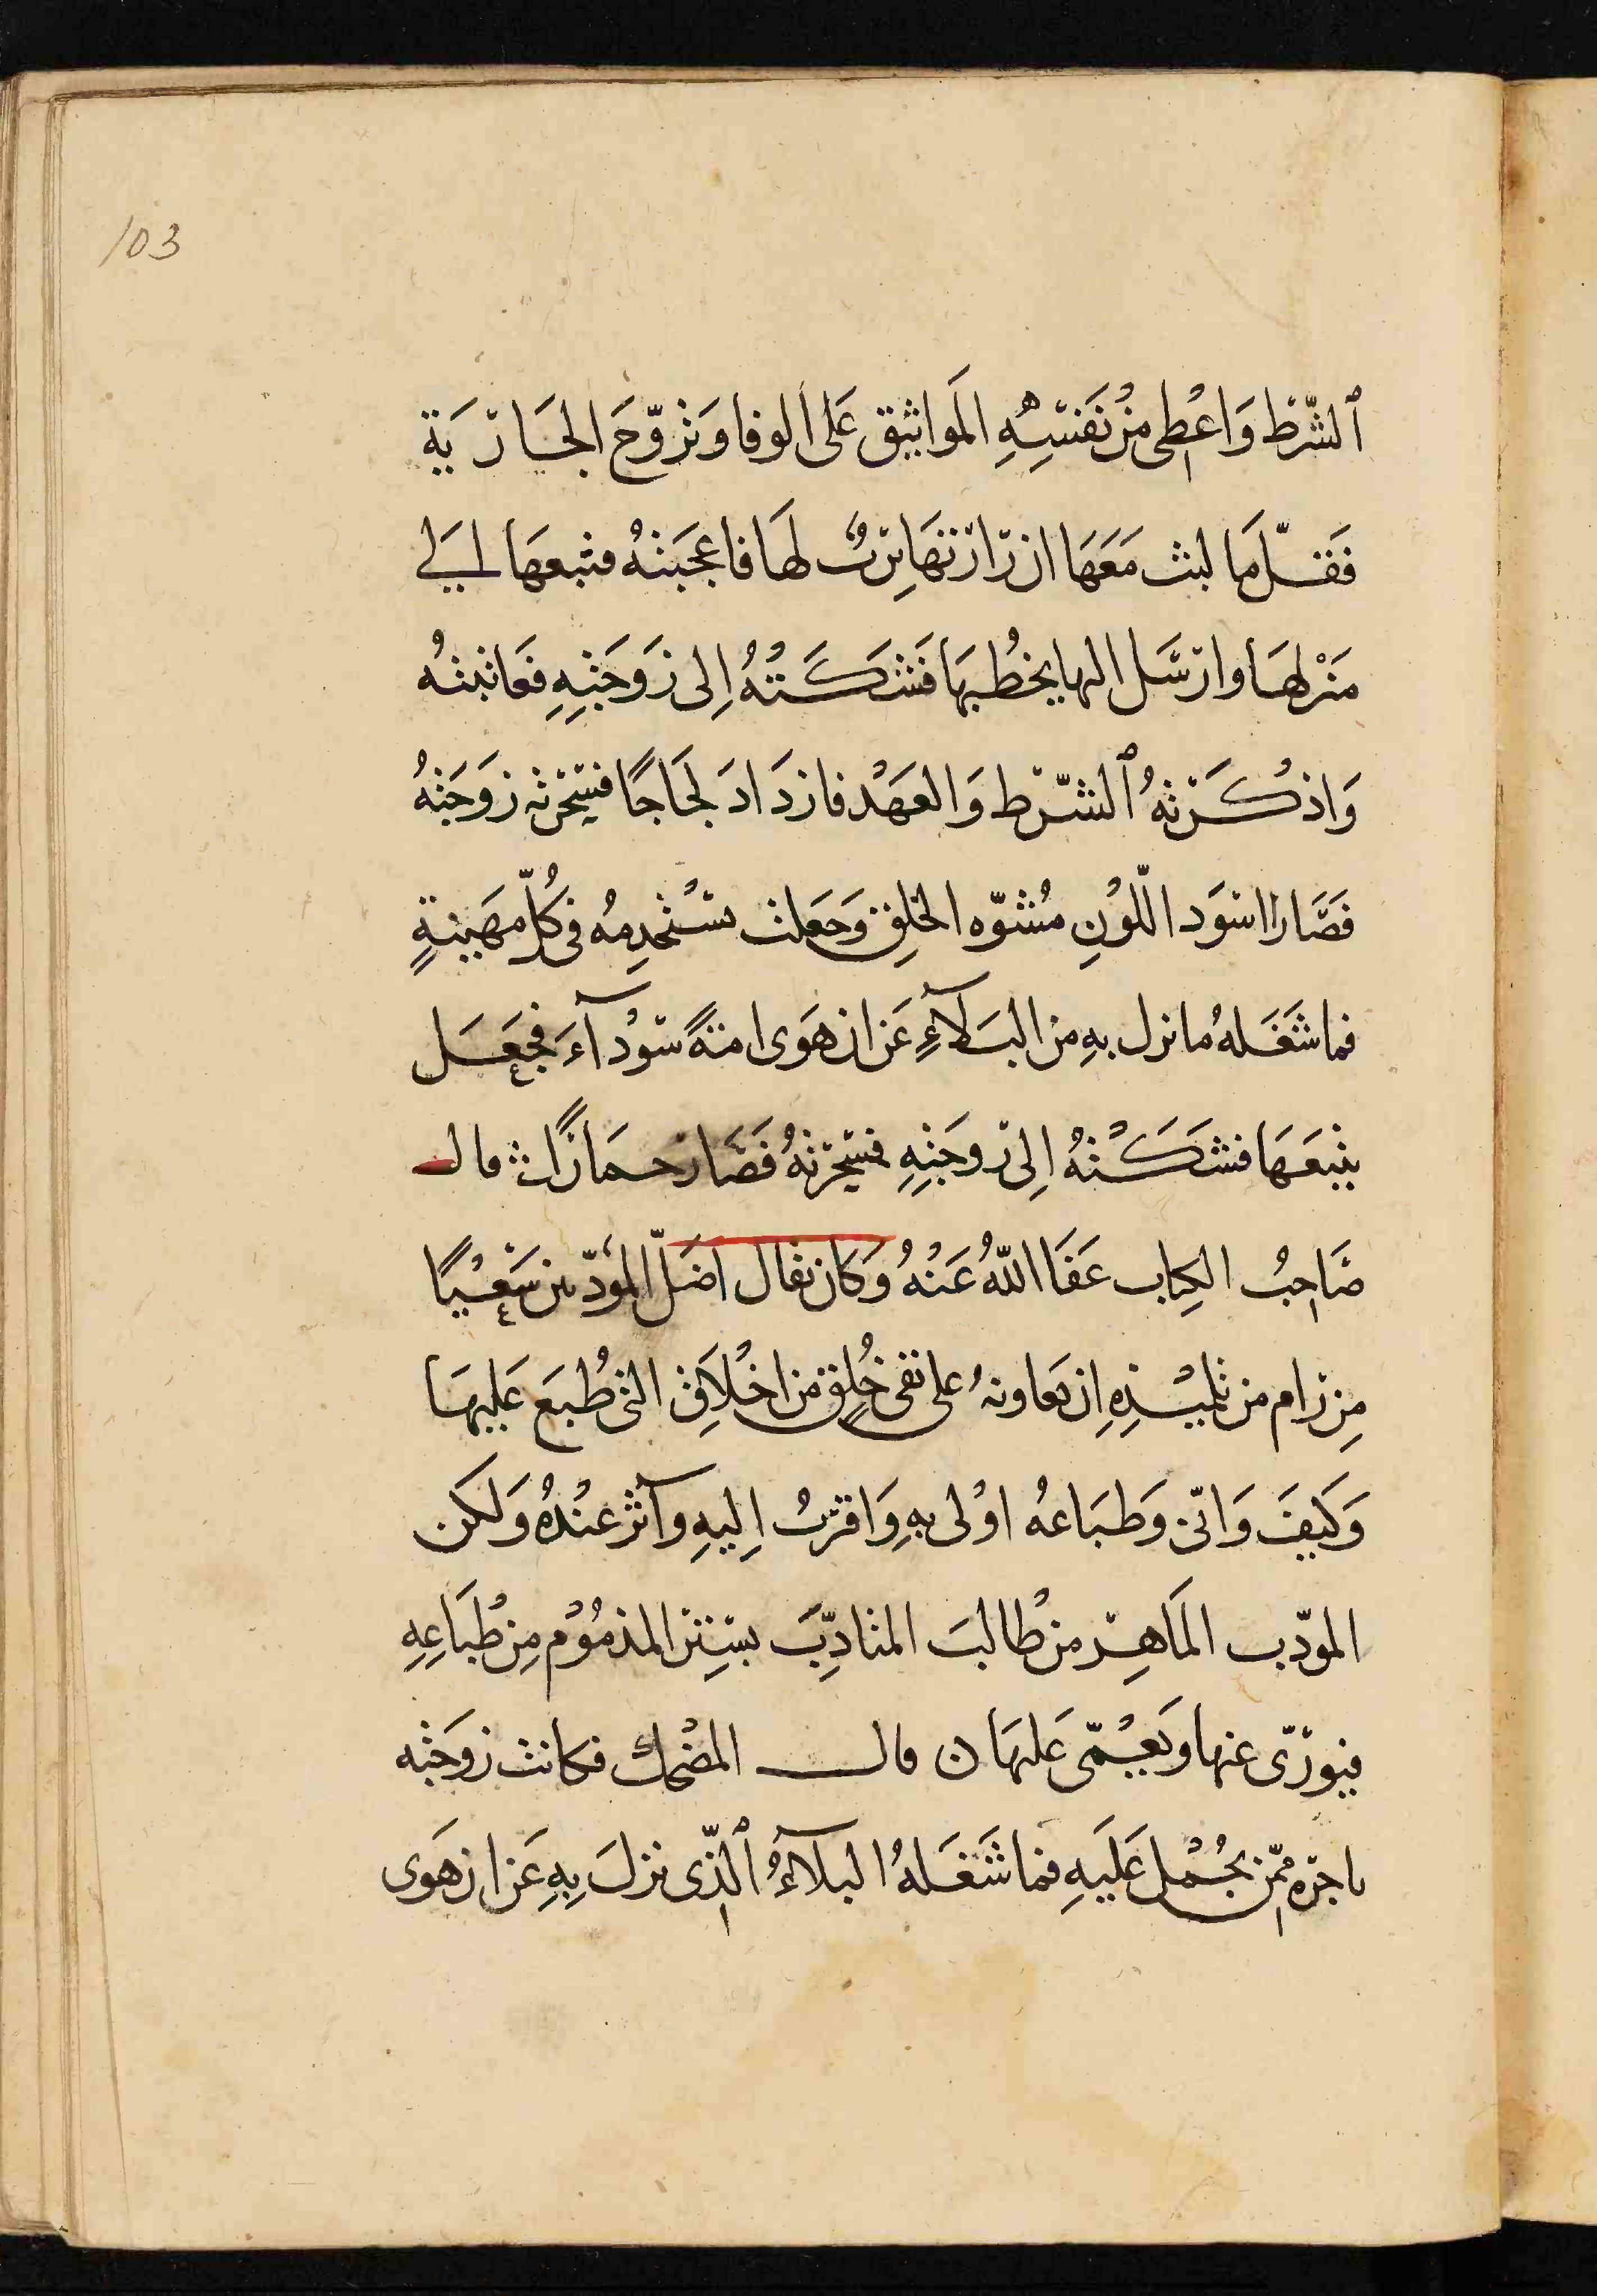 103
ٱلشَّرْط وَاعْطى مِنْ نَفْسِهِ المَواثيق عَلى الوفا وَتزوّجَ الجَارَيَة
فَقلّ مَا لبث مَعَهَا ان زَارَتهَا تِرْبٌ لهَا فاعجَبَتهُ فتبعَهَا إلى
مَنْزِلهَا وارسَل اليها يخطُبهَا فَشَكَتْهُ اِلى زَوجَتِهِ فعَاتبتهُ
وَاذكَرَتهُ ٱلشّرْط وَالعَهْد فازدَادَ لجَاجًا فسَحَرته زَوجَتهُ
فصَار اسوَد اللّونِ مُشوّه الخلقِ وَجَعَلت تسْتخدِمهُ في كُلّ مهَينةٍ
فما شَغَلهُ ما نزل بهِ من البَلَآءِ عَن ان هَوى امَةً سَوْدَآءَ فجَعَل
يتبعَهَا فشَكَتْهُ اِلى زَوجَتِهِ فسَحَرتهُ فَصَار حمَارًا قال
صَاحِبُ الكِتاب عَفَا اللّهُ عَنْهُ وَكان يقال اضَلّ المُؤدّبين سَعْيًا
مِن رَام من تلميْذِهِ ان يعَاونهُ على نفى خُلقٍ من اخْلَاقِ التى طُبعَ عَليهَا
وَكَيفَ وَانّى وَطبَاعهُ اوْلى بهِ وَاقرَبُ اِليهِ وآثر عنْدهُ وَلكن
المودّب المَاهِر من طالبَ المتادِّبَ بسَتِر المذمُوْم مِن طبَاعِهِ
فيورّى عنها ويَعْمّى عَليهَا ن قال المضْحك فكانت زوجَته
تاجرَهُ ممّن يحْمل عَليَهِ فما شَغَلهُ البلَآءُ ٱلّذى نزلَ بِهِ عَن ان هَوى